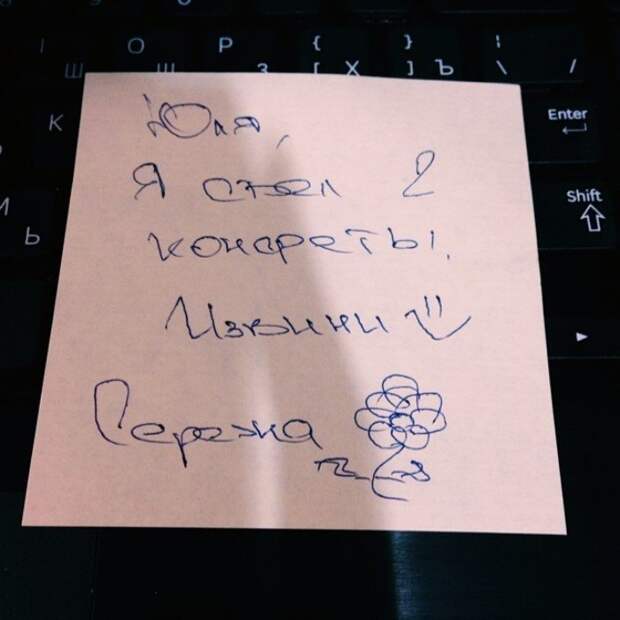 O P { }
Ш Щ З [ Х ] Ъ \ /
K Enter
Ь Shift
Юля,
Я съел 2
конфеты.
Извини
Сережа